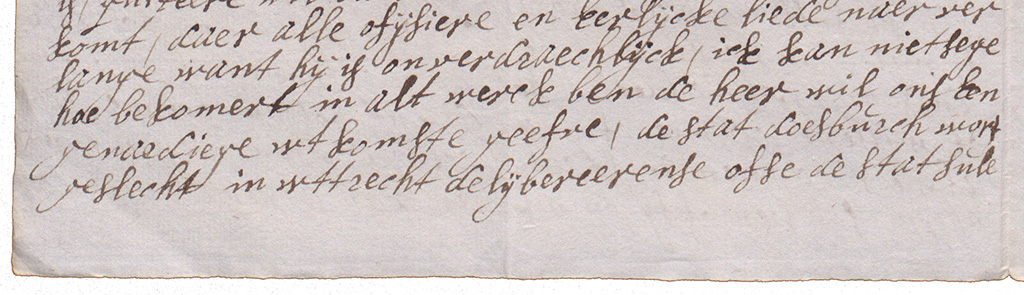 komt, daer alle ofysiere en eerlycke liede naer ver
lange want hy is onverdraechlyck, ick kan niet sege
hoe bekomert in alt werck ben de heer wil ons een
genaediege wtkomste geefve, de stat doesburch wort
geslecht in wttrecht delybereerense ofse de stat sule